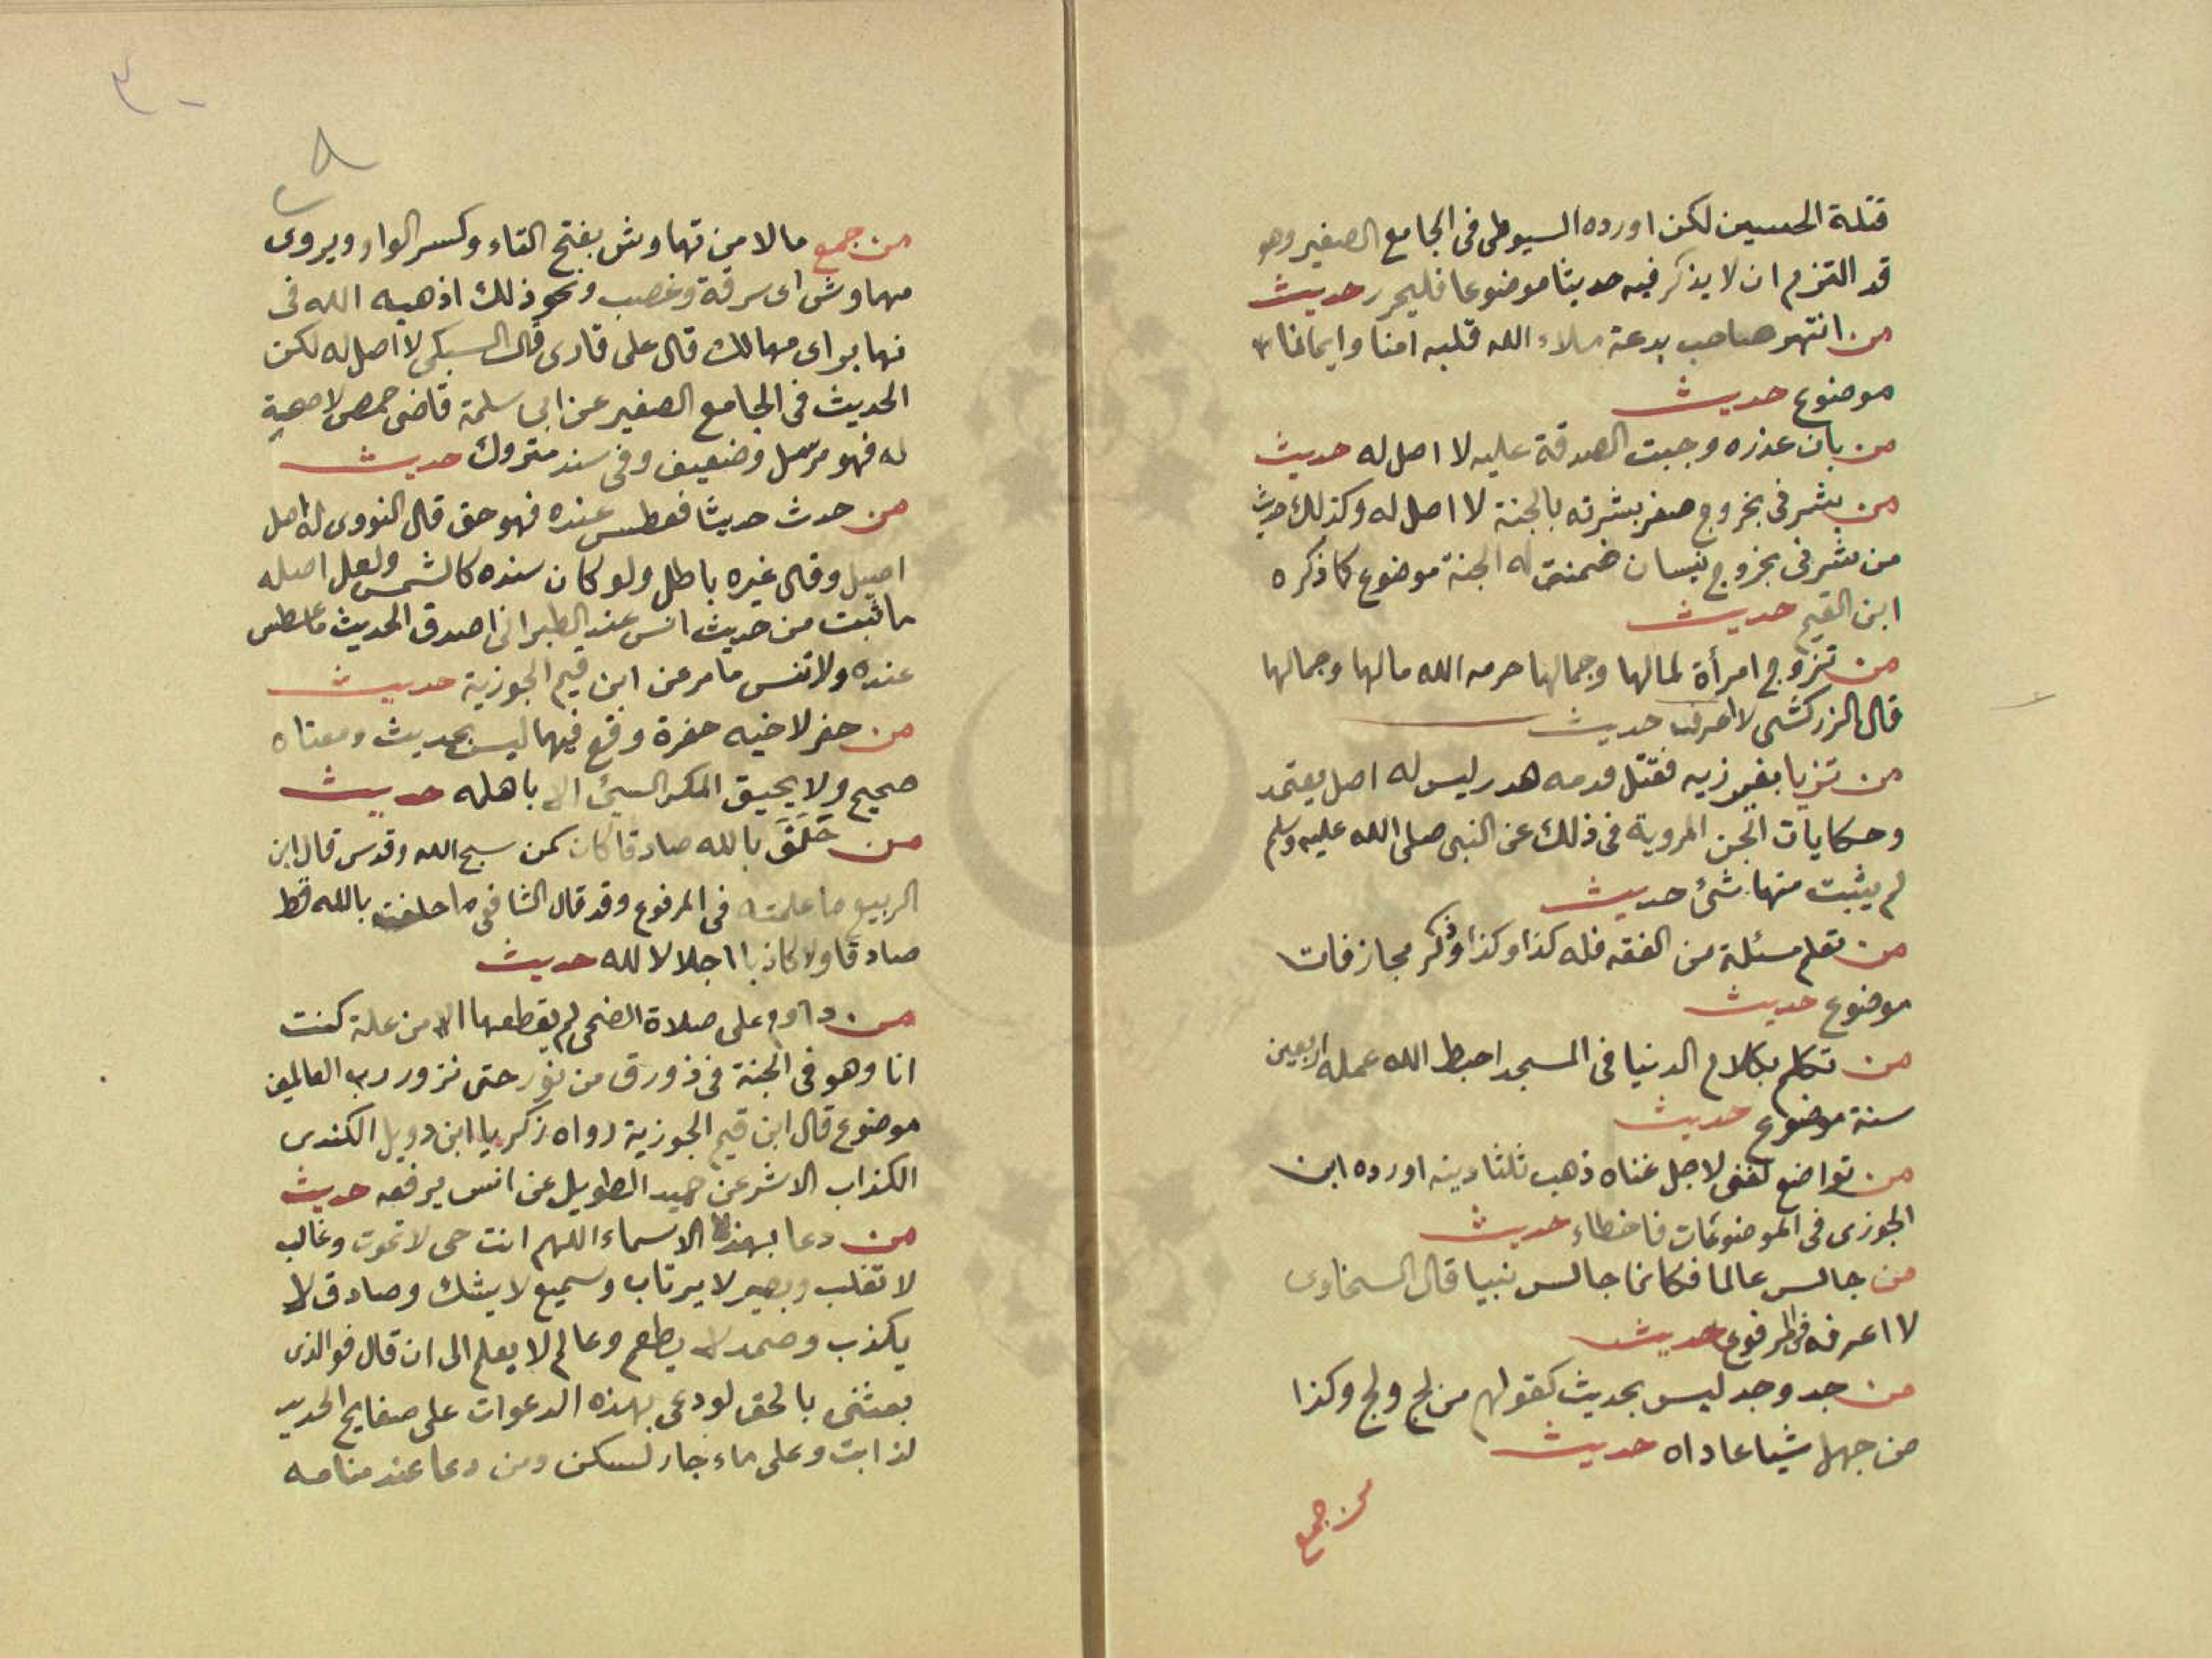 قتلة الحسين لكن اورده السيوطى فى الجامع الصغير وهو
قد التزم ان لا يذكر فيه حديثا موضوعا فليحرر حديث
من انتهر صاحب بدعة ملاء الله قلبه امنا وايمانا
موضوع حديث
من بان عذره وجبت الصدقة عليه لا اصل له حديث
من بشرنى بخروج صفر بشرته بالجنة لا اصل له وكذلك حديث
من بشرنى بخروج نيسان ضمنت له الجنة موضوع كما ذكره
ابن القيم حديث
من تزوج امرأة لمالها وجمالها حرمه الله مالها وجمالها
قال الزركشى لا اعرفه حديث
من تزيا بغير زيه فقتل فدمه هدر ليس له اصل يعتمد
وحكايات الجن المروية فى ذلك عن النبى صلى الله عليه وسلم
لم يثبت منها شئ حديث
من تعلم مسئلة من الفقه فله كذا وكذا وذكر مجازفات
موضوع حديث
من تكلم بكلام الدنيا فى المسجد احبط الله عمله اربعين
سنة موضوع حديث
من تواضع لغنى لاجل غناه ذهب ثلثا دينه اورده ابن
الجوزى فى الموضوعات فاخطاء حديث
من جالس عالما فكانما جالس نبيا قال السخاوى
لا اعرفه فى المرفوع حديث
من جد وجد ليس بحديث كقولهم من لج ولج وكذا
من جهل شيا عاداه حديث
من جمع
من جمع مالا من تهاوش بفتح التاء وكسر الواو ويروى
مهاوش اى سرقة وغصب ونحو ذلك اذهبه الله فى
نهابر اى مهالك قال على قارى قال السبكى لا اصل له لكن
الحديث فى الجامع الصغير عن ابى سلمة قاضى حمص لا صحبة
له فهو مرسل وضعيف وفى سند متروك حديث
من حدث حديثا فعطس عنده فهو حق قال النووى له اصل
اصيل وقال غيره باطل ولو كان سنده كالشمس ولعل اصله
ما ثبت من حديث انس عند الطبرانى اصدق الحديث ما عطس
عنده ولا تنس ما مر عن ابن قيم الجوزية حديث
من حفر لاخيه حفرة وقع فيها ليس بحديث ومعناه
صحيح ولا يحيق المكر السيئ الا باهله حديث
من حَلَفَ بالله صادقا كان كمن سبح الله وقدس قال ابن
الربيع ما علمته فى المرفوع وقد قال الشافعى ما حلفت بالله قط
صادقا ولا كاذبا اجلالا لله حديث
من داوم على صلاة الضحى لم يقطعها الا من علة كنت
انا وهو فى الجنة فى ذورق من نور حتى نزور رب العالمين
موضوع قال ابن قيم الجوزية رواه زكريا ابن دويل الكندى
الكذاب الاشر عن حميد الطويل عن انس يرفعه حديث
من دعا بهذه الاسماء اللهم انت حى لا تموت وغالب
لا تغلب وبصير لا يرتاب وسميع لا يشك وصادق لا
يكذب وصمد لا يطعم وعالم لا يعلم الى ان قال فو الذى
بعثنى بالحق لو دعى بهذه الدعوات على صفايح الحديد
لذابت وعلى ماء جار لسكن ومن دعا عند منامه